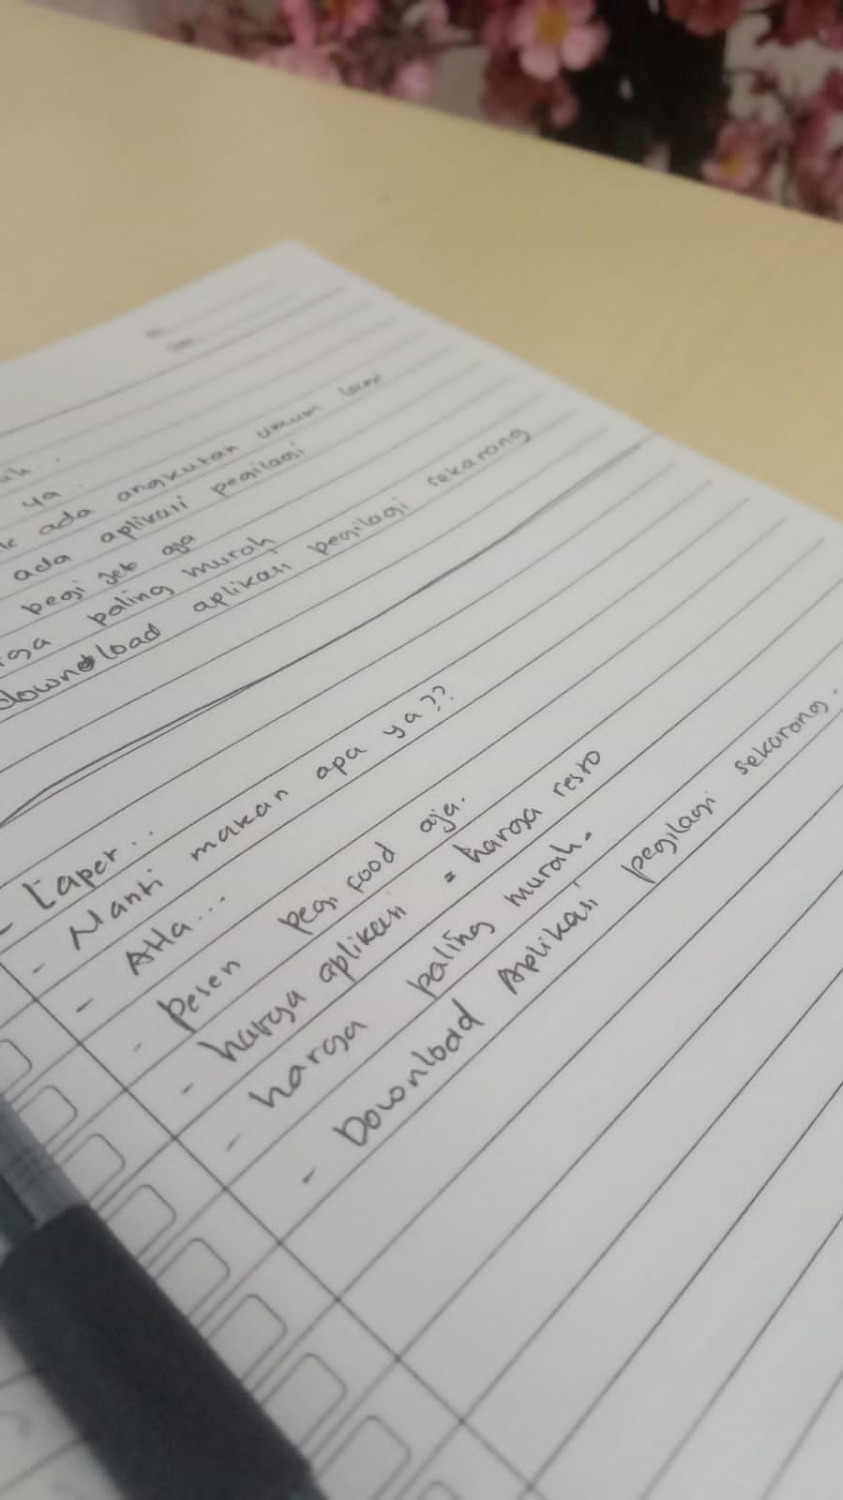 ya.
ada angkutan umum
ada aplikasi pegilagi
pegi jek aja
paling murah
download aplikasi pegilagi sekarang
- Laper..
- Nanti makan apa ya??
- AHa...
- pesen pegi food aja.
- harga aplikasi = harga resto
- harga paling murah.
- Download Aplikasi pegilagi sekarang.